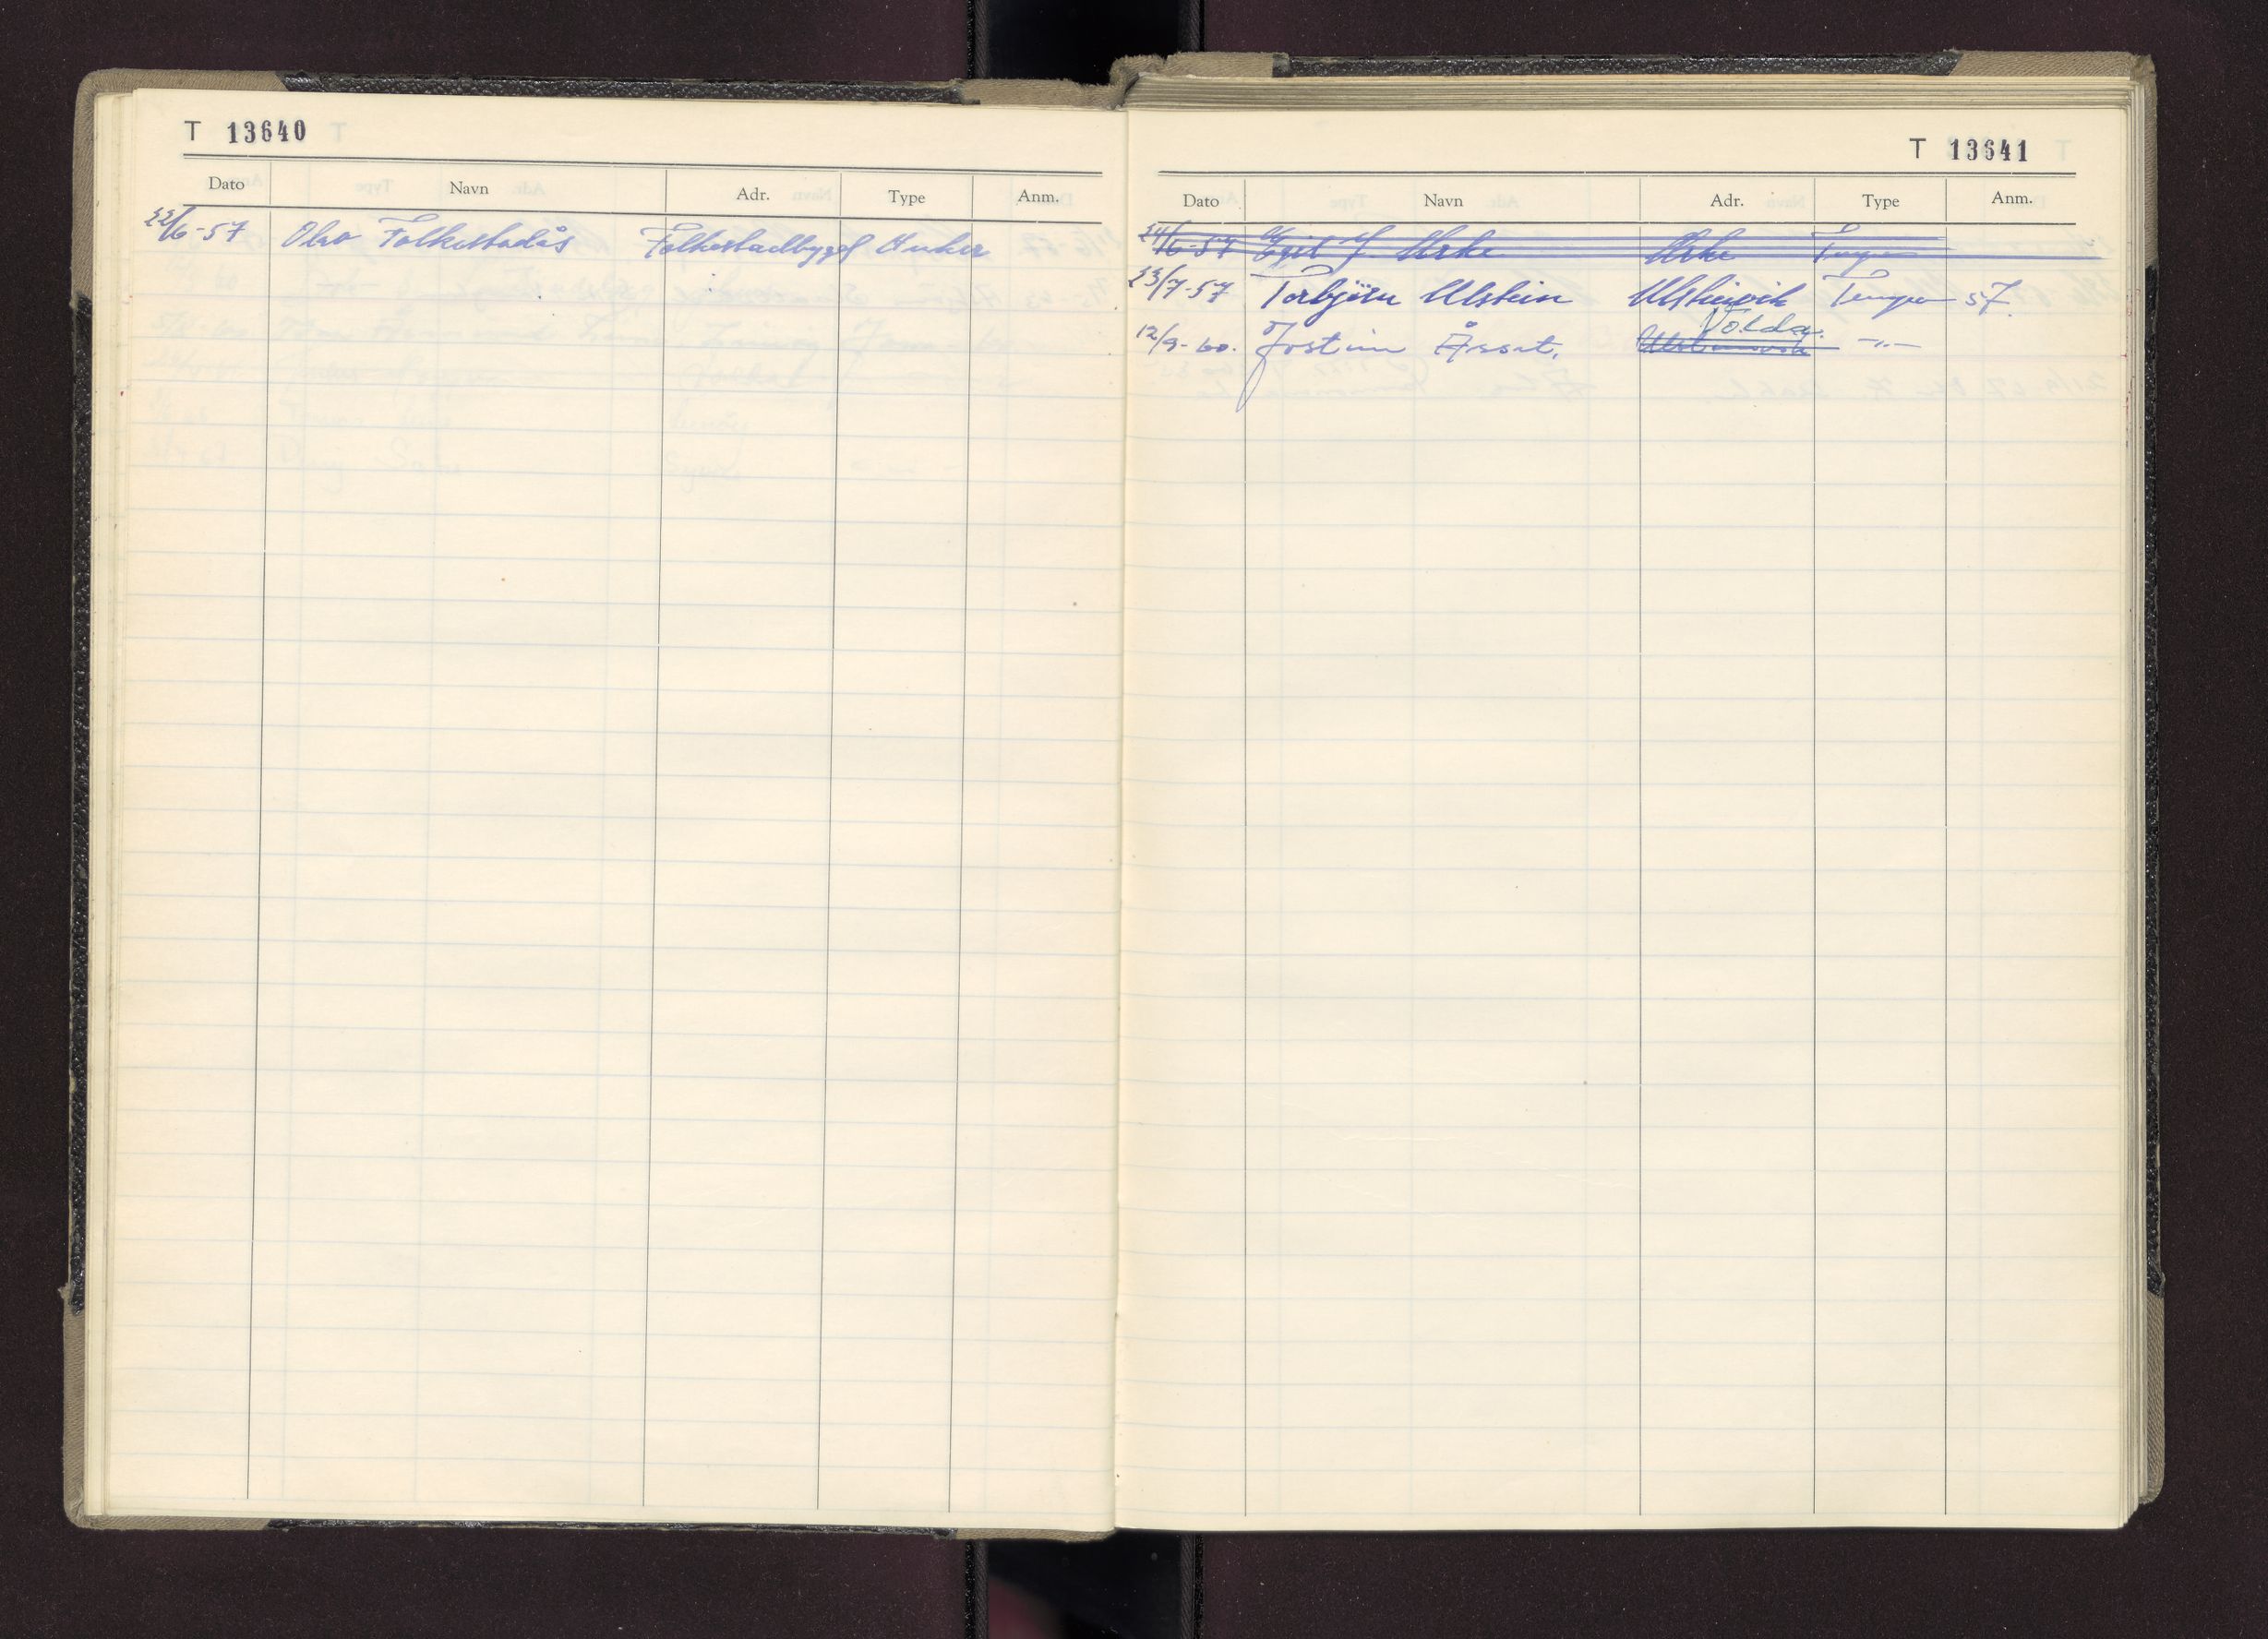 T 13640
Dato Navn Adr. Type Anm.
22/6-57 Olav Folkestadås Folkestadbygd Anker
T 13641
Dato Navn Adr. Type Anm.
24/6-57 Egil J. Urke Urke
23/7-57 Torbjörn Ulstein Ulsteinvik Tempo 57
Volda
12/9-60. Jostein Åssat. Ulsteinvik -"-